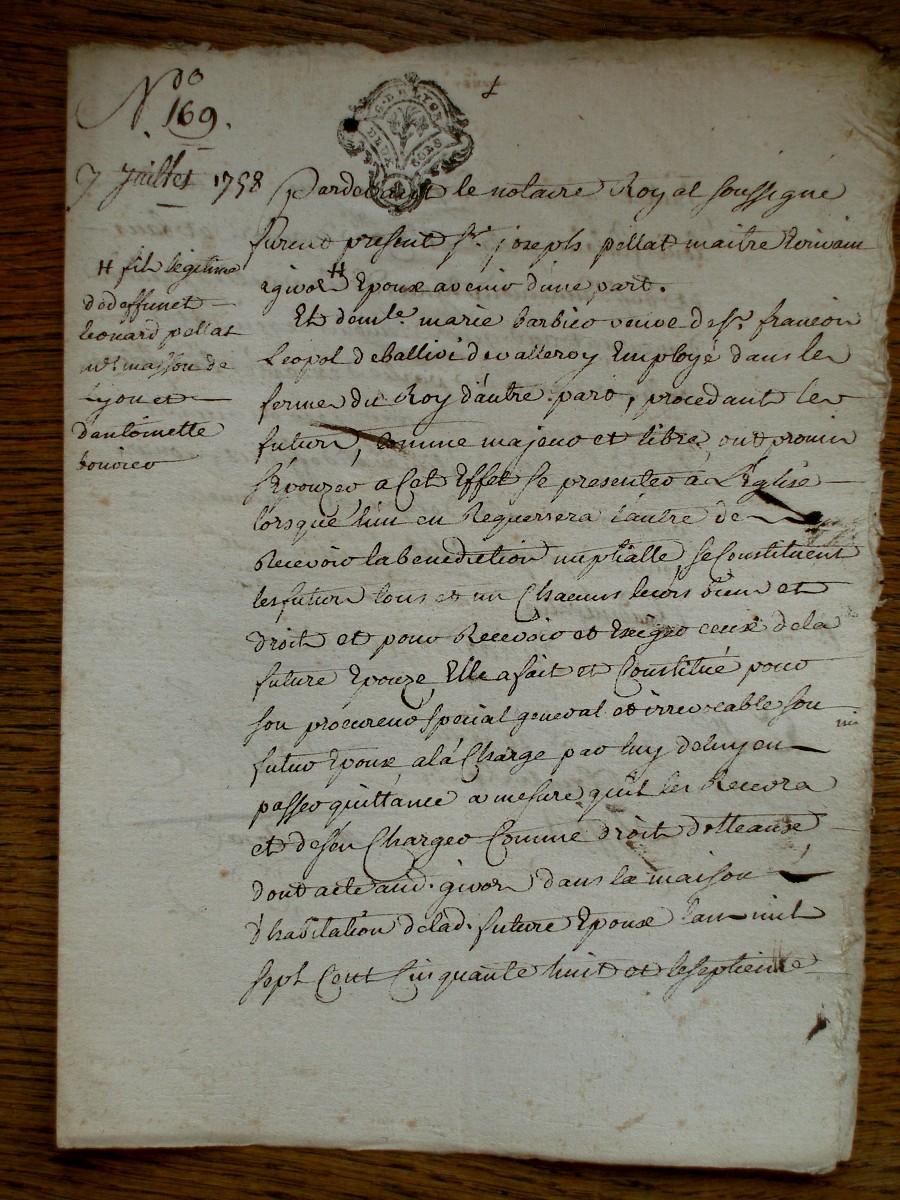 N.do
169.
7 Juillet 1758
G. DE LYON
DEUX
SOLS
Pardevant le notaire Royal soussigné
furent present sr. joseph pellat maitre Ecrivain
a givor H Epoux avenir d'une part.
H fils legitime
de deffunct
leonard pellat
mr masson de
Lyon et
d'antoinette
Et demlle. marie barbier veuve de sr. francois
Leopol de ballivi de valleroy Employé dans les
fermes du Roy d'autre part, procedant les
futurs, Comme majeur et libre, ont promis
s'Epouzer a Cet Effet se presenter à L'Eglise
lorsque l'un en Requerrera l'autre de
Recevoir la benediction nuptialle, se Constituent
les futurs tous et un Chacuns leurs biens et
droits et pour Recevoir et Exiger ceux de la
future Epouze, Elle a fait et Constitué pour
son procureur special general et irrevocable son
futur Epoux, a la Charge par luy de luy en
passer quittance a mesure qu'il les Recevra
et de s'en Charger Comme droits dotteaux
dont acte aud. givors dans la maison
d'habitation de lad. future Epouse l'an mil
sept Cent Cinquante huit et le septieme